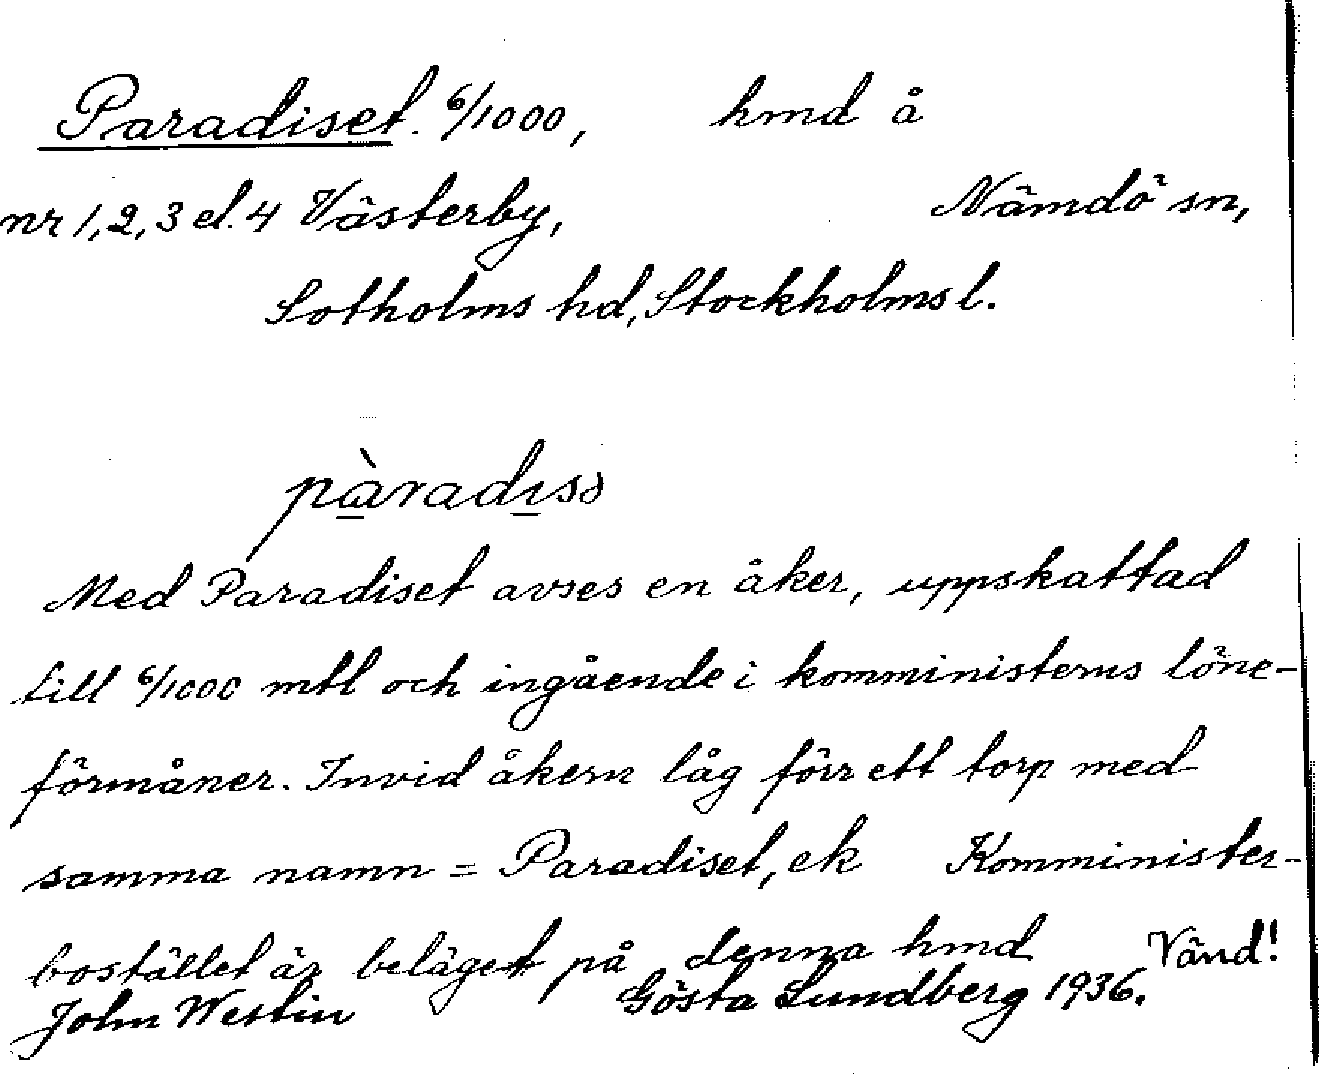 Paradiset. 6/1000, hmd å
nr 1, 2, 3 el. 4 Västerby, Nämdö sn,
Sotholms hd, Stockholms l.
pàradıss
Med Paradiset avses en åker, uppskattad
till 6/1000 mtl och ingående i komministerns löne-
förmåner. Invid åkern låg förr ett torp med
samma namn = Paradiset, ek Komminister-
bostället är beläget på denna hmd Vänd!
John Westin Gösta Lundberg 1936.